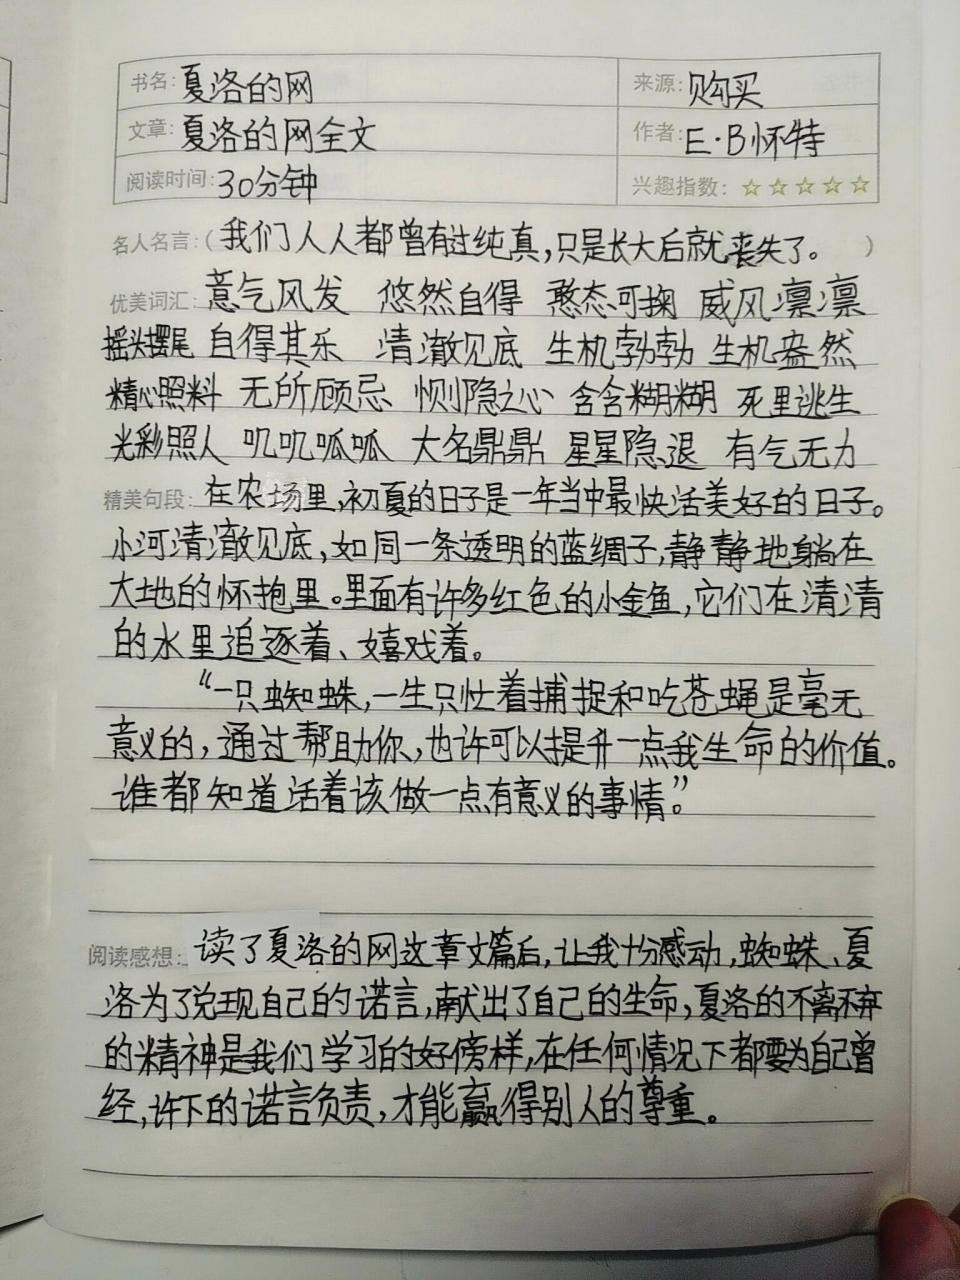 书名:夏洛的网 来源:购买
文章:夏洛的网全文 作者:E·B怀特
阅读时间:30分钟 兴趣指数:☆☆☆☆☆
名人名言:(我们人人都曾有过纯真,只是长大后就丧失了。)
优美词汇:意气风发 悠然自得 憨态可掬 威风凛凛
摇头摆尾 自得其乐 清澈见底 生机勃勃 生机盎然
精心照料 无所顾忌 恻隐之心 含含糊糊 死里逃生
光彩照人 叽叽呱呱 大名鼎鼎 星星隐退 有气无力
精美句段:在农场里,初夏的日子是一年当中最快活美好的日子。
小河清澈见底,如同一条透明的蓝绸子,静静地躺在
大地的怀抱里。里面有许多红色的小金鱼,它们在清清
的水里追逐着、嬉戏着。
“一只蜘蛛,一生只忙着捕捉和吃苍蝇是毫无
意义的,通过帮助你,也许可以提升一点我生命的价值。
谁都知道活着该做一点有意义的事情。”
阅读感想:读了夏洛的网这章文篇后,让我十分感动,蜘蛛、夏
洛为了兑现自己的诺言,献出了自己的生命,夏洛的不离不弃
的精神是我们学习的好傍样,在任何情况下都要为自己曾
经,许下的诺言负责,才能赢得别人的尊重。